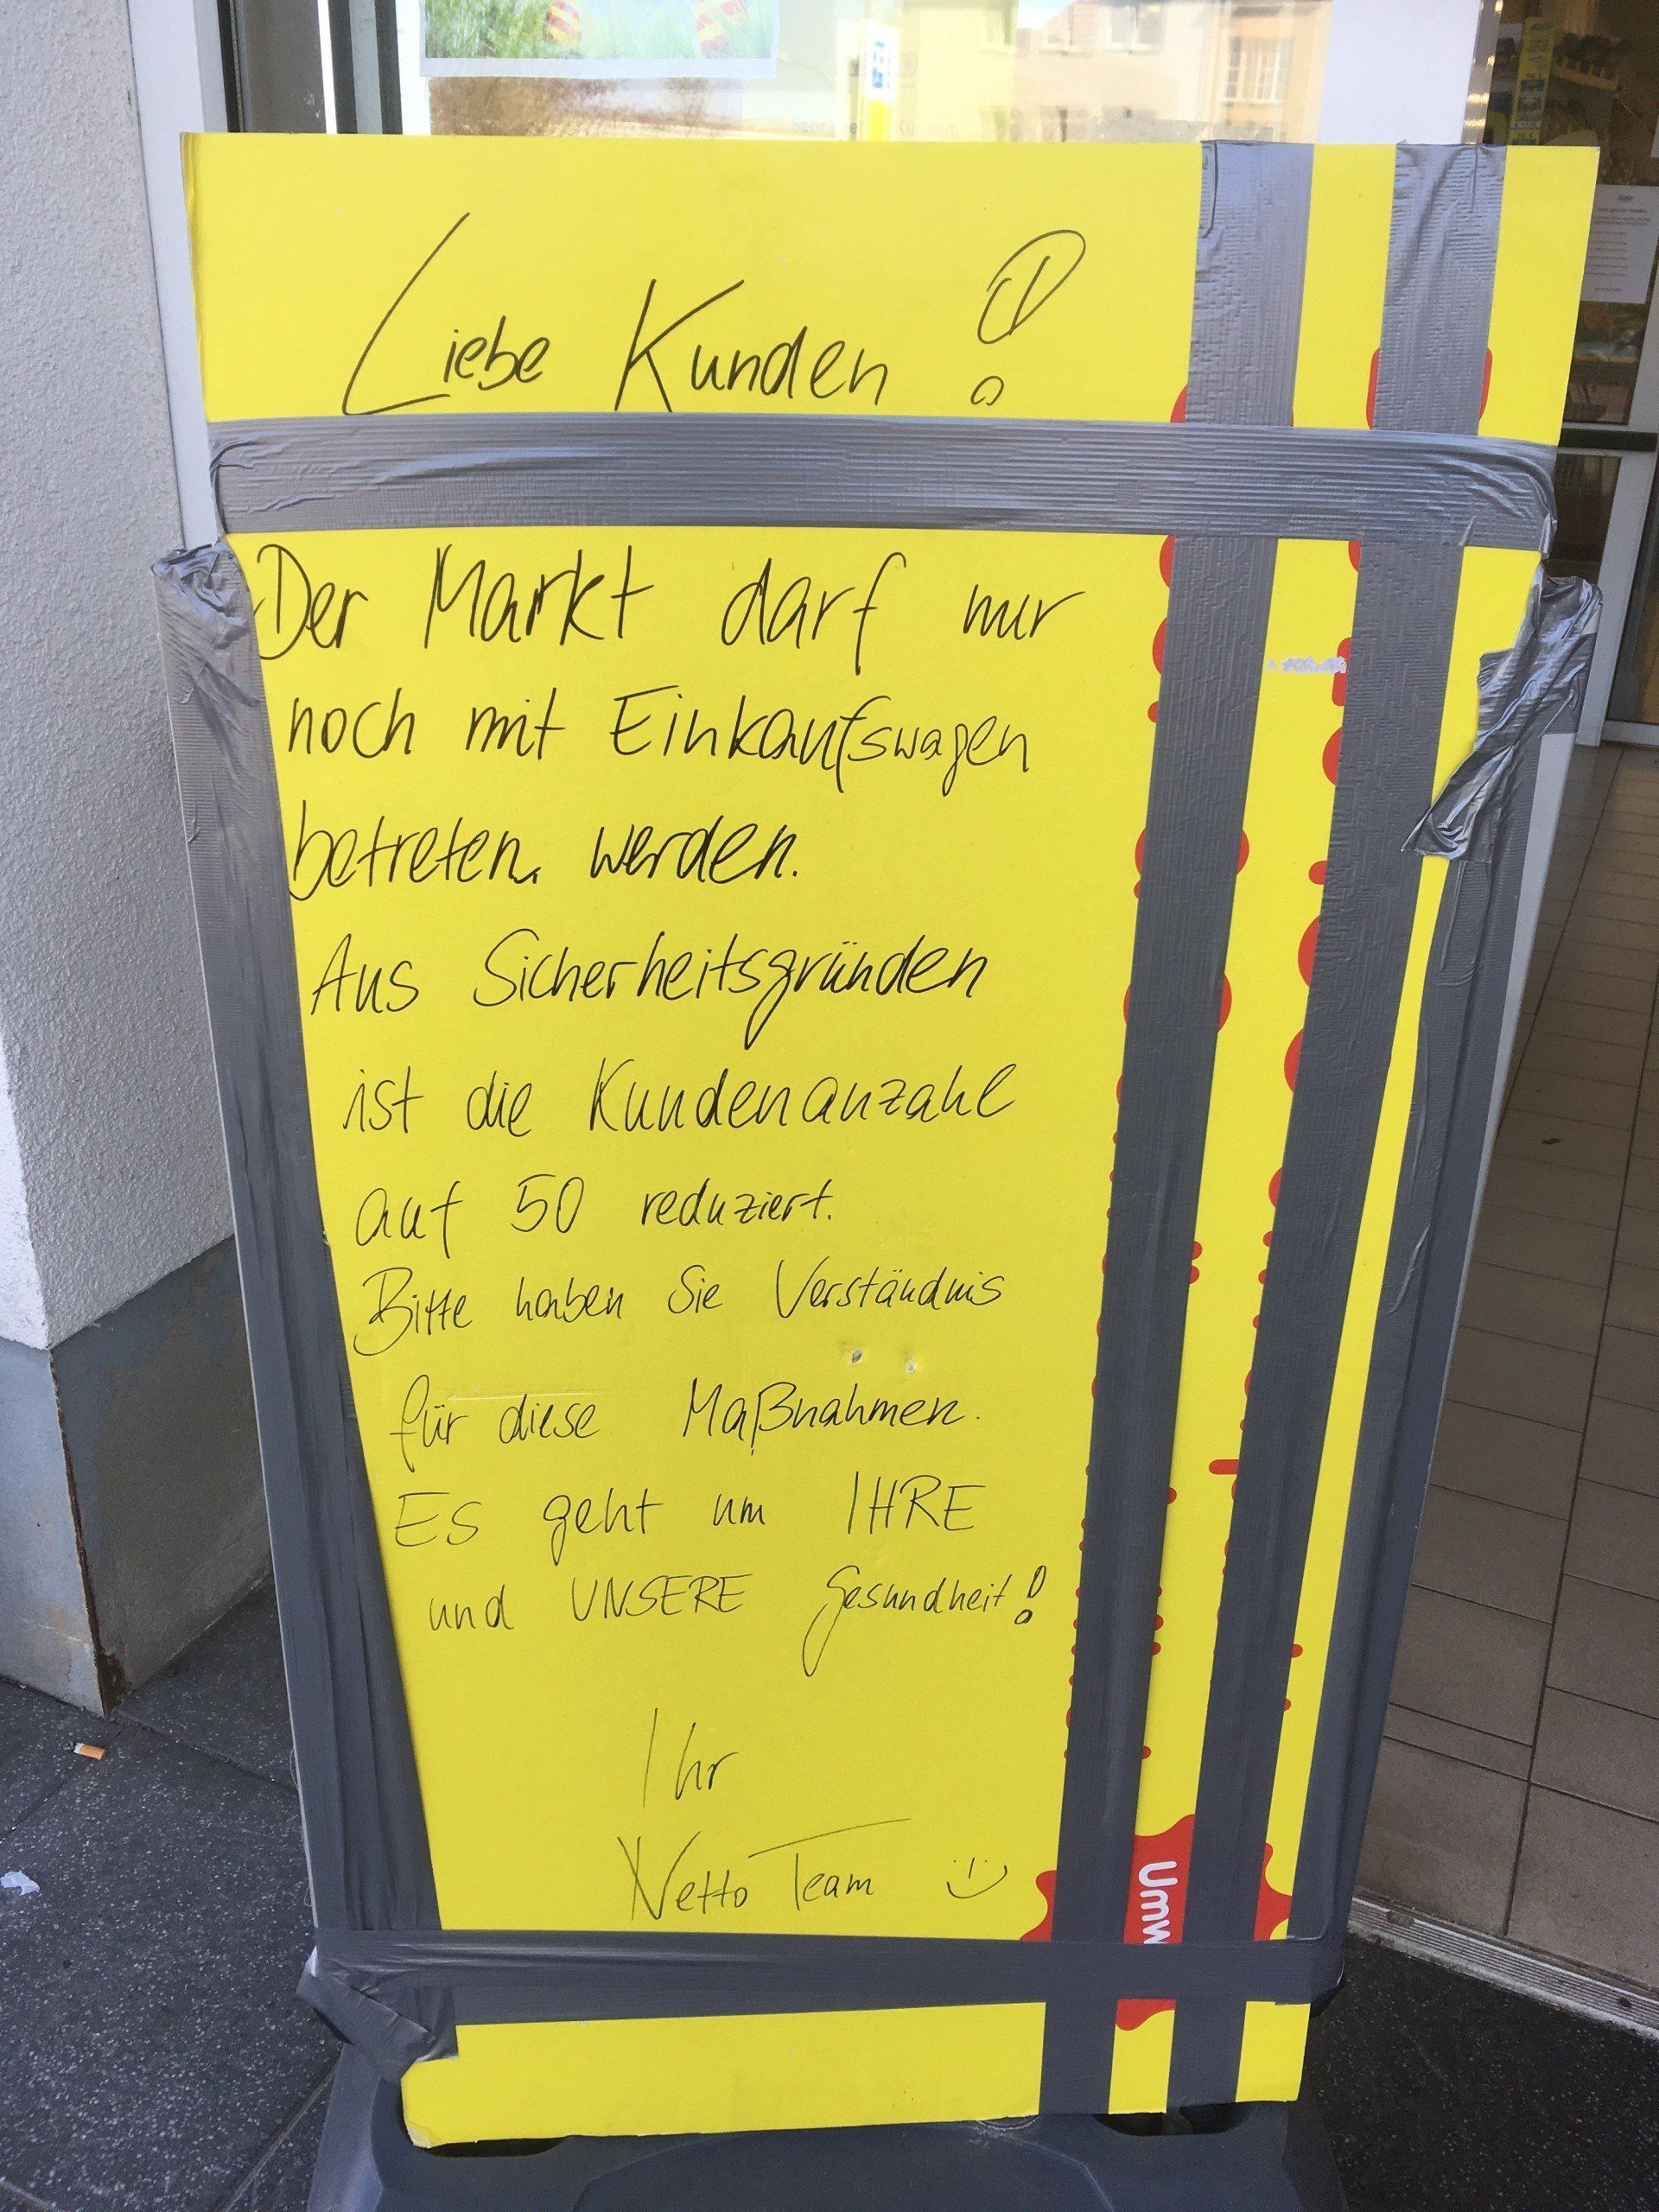 Liebe Kunden!
Der Markt darf nur
noch mit Einkaufswagen
betreten werden.
Aus Sicherheitsgründen
ist die Kundenanzahl
auf 50 reduziert.
Bitte haben Sie Verständnis
für diese Maßnahmen.
Es geht um IHRE
und UNSERE Gesundheit!
Ihr
Netto Team :)
Umw